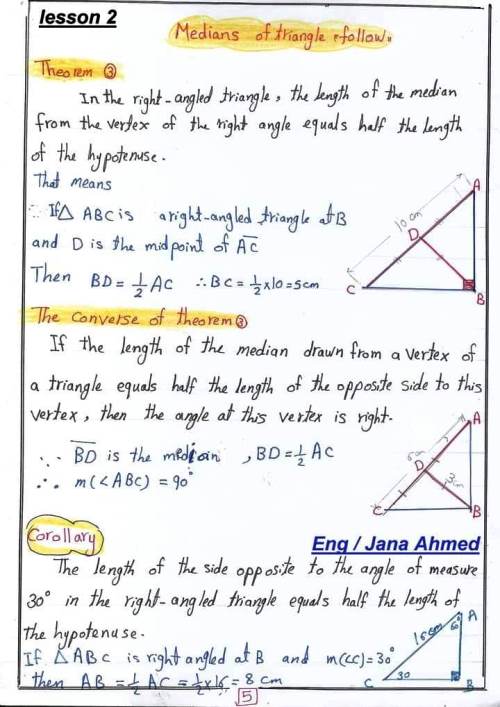 lesson 2
Medians of triangle "follow"
Theorem ③
In the right-angled triangle, the length of the median
from the vertex of the right angle equals half the length
of the hypotenuse.
That means
∵ If △ ABC is a right-angled triangle at B
and D is the midpoint of AC
Then BD = 1/2 AC ∴ BC = 1/2 × 10 = 5 cm
A
10 cm
D
C
B
The Converse of theorem ③
If the length of the median drawn from a vertex of
a triangle equals half the length of the opposite side to this
vertex, then the angle at this vertex is right.
∵ BD is the median , BD = 1/2 AC
∴ m(∠ABC) = 90°
A
6 cm
D
3 cm
C
B
Corollary
Eng / Jana Ahmed
The length of the side opposite to the angle of measure
30° in the right-angled triangle equals half the length of
the hypotenuse.
If △ ABC is right angled at B and m(∠C) = 30°
then AB = 1/2 AC = 1/2 × 16 = 8 cm
A
60°
16 cm
30
C
B
5